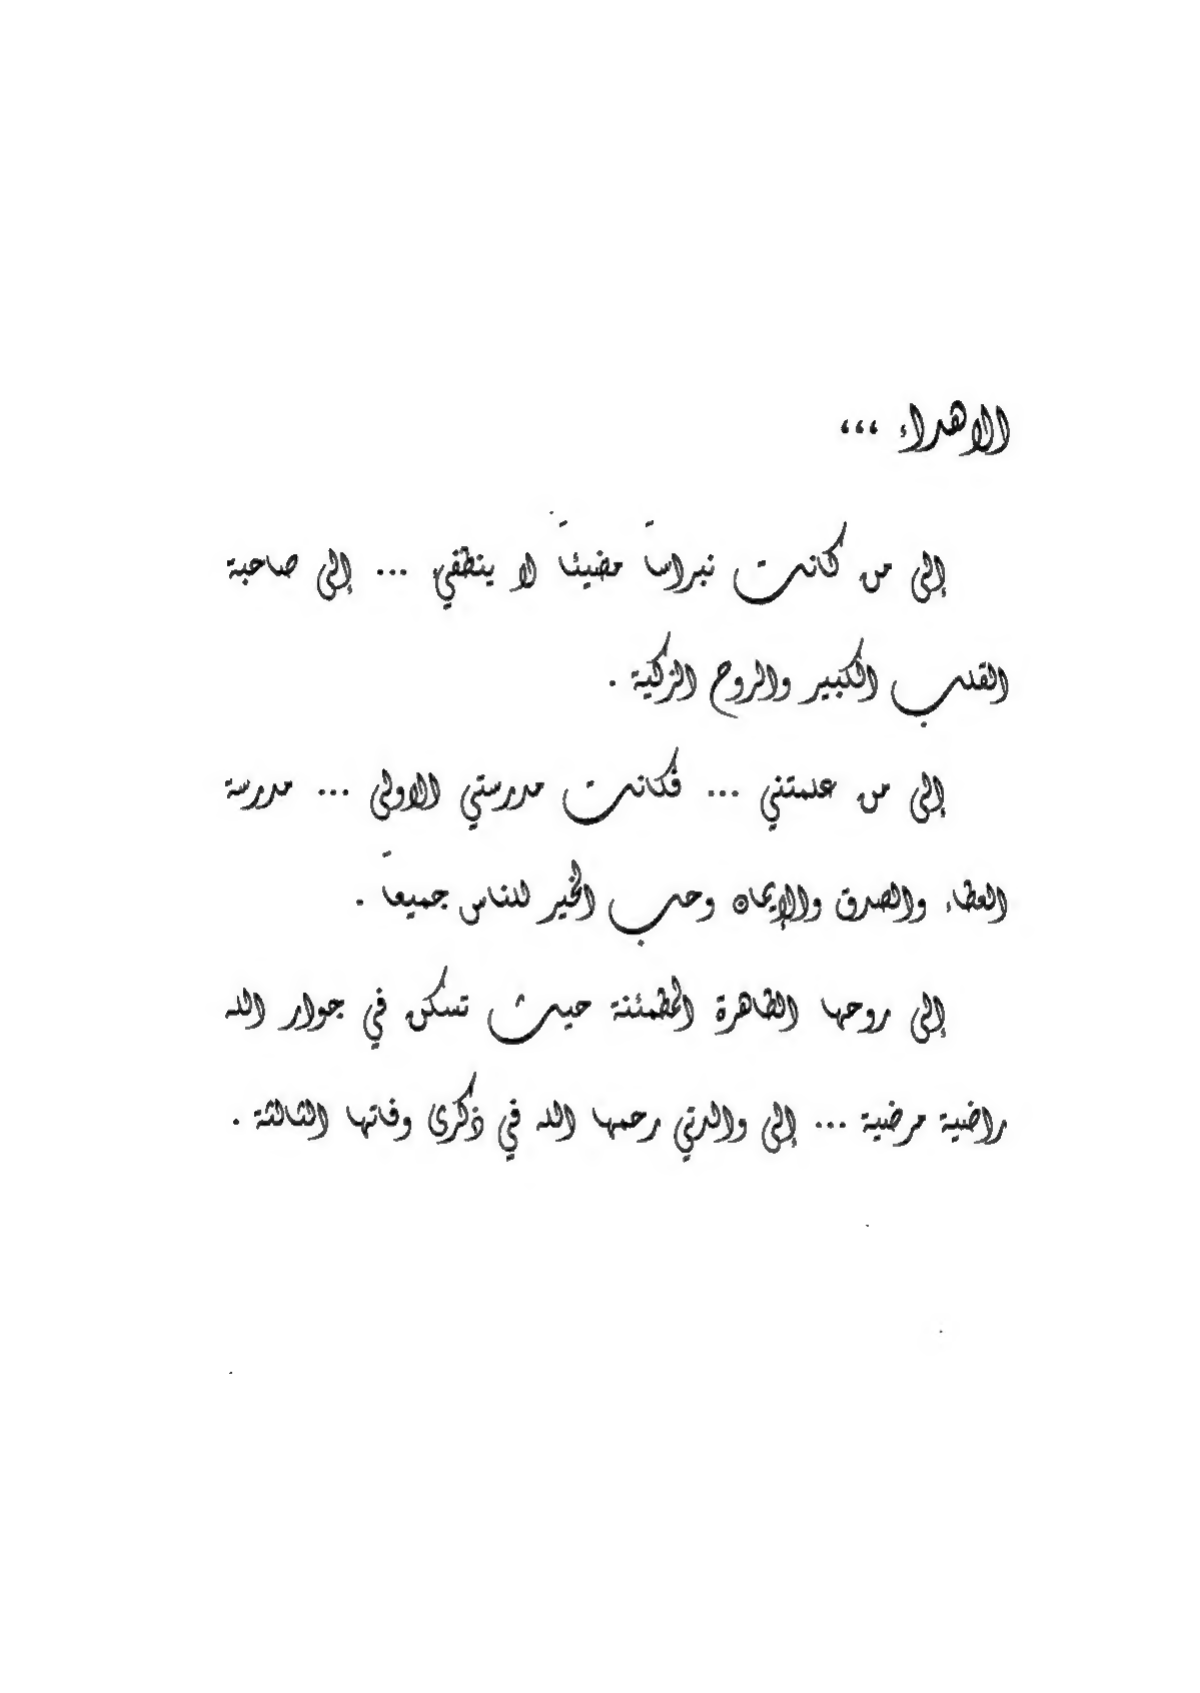 الاهداء ،،،
إلى من كانت نبراساً مضيئاً لا ينطفيء ... إلى صاحبة
القلب الكبير والروح الزكية .
إلى من علمتني ... فكانت مدرستي الاولى ... مدرسة
العطاء والصدق والإيمان وحب الخير للناس جميعاً .
إلى روحها الطاهرة المطمئنة حيث تسكن في جوار الله
راضية مرضية ... إلى والدتي رحمها الله في ذكرى وفاتها الثالثة .